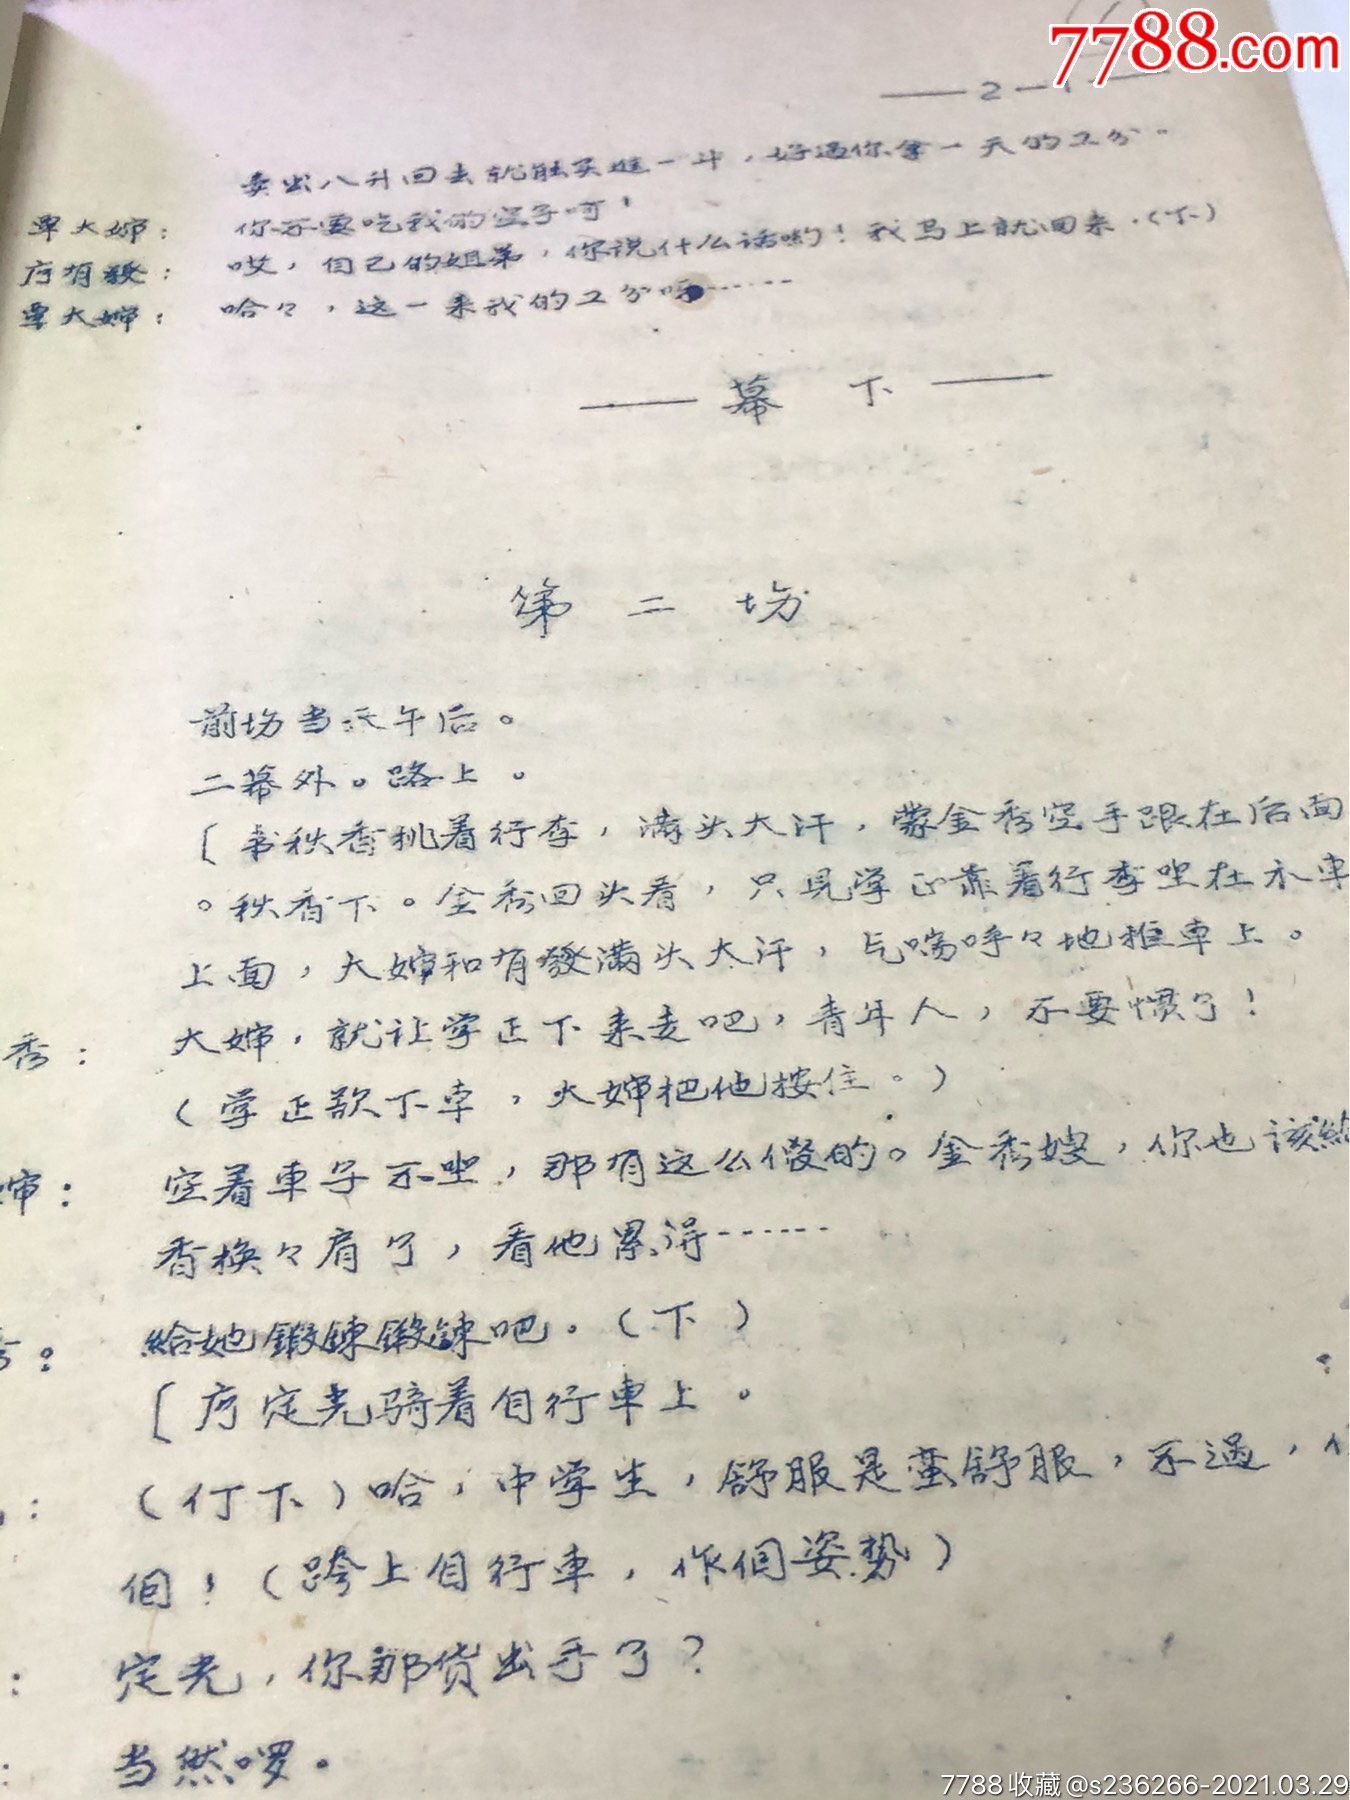 7788.com
—— 2 —
卖出八升回去就能买进一斗，好过你拿一天的工分。
覃大婶： 你不要吃我的空子呵！
序有發： 哎，自己的姐弟，你说什么话哟！我马上就回来.(下)
覃大婶： 哈々，这一来我的工分呀……
—— 幕 下 ——
第 二 场
前场当天午后。
二幕外。路上。
[ 韦秋香挑着行李，满头大汗，蒙金秀空手跟在后面
。秋香下。金秀回头看，只见学正靠着行李坐在木車
上面，大婶和有發满头大汗，气喘呼々地推車上。
秀： 大婶，就让学正下来走吧，青年人，不要惯了！
（学正欲下車，大婶把他按住。）
婶： 空着車子不坐，那有这么傻的。金秀嫂，你也该給
香换々肩了，看他累得……
秀： 給她鍛鍊鍛鍊吧。（下）
[ 序定光骑着自行車上。
： （仃下）哈，中学生，舒服是蛮舒服，不过，
個！（跨上自行車，作個姿势）
： 定光，你那货出手了？
： 当然啰。
7788收藏@s236266-2021.03.29